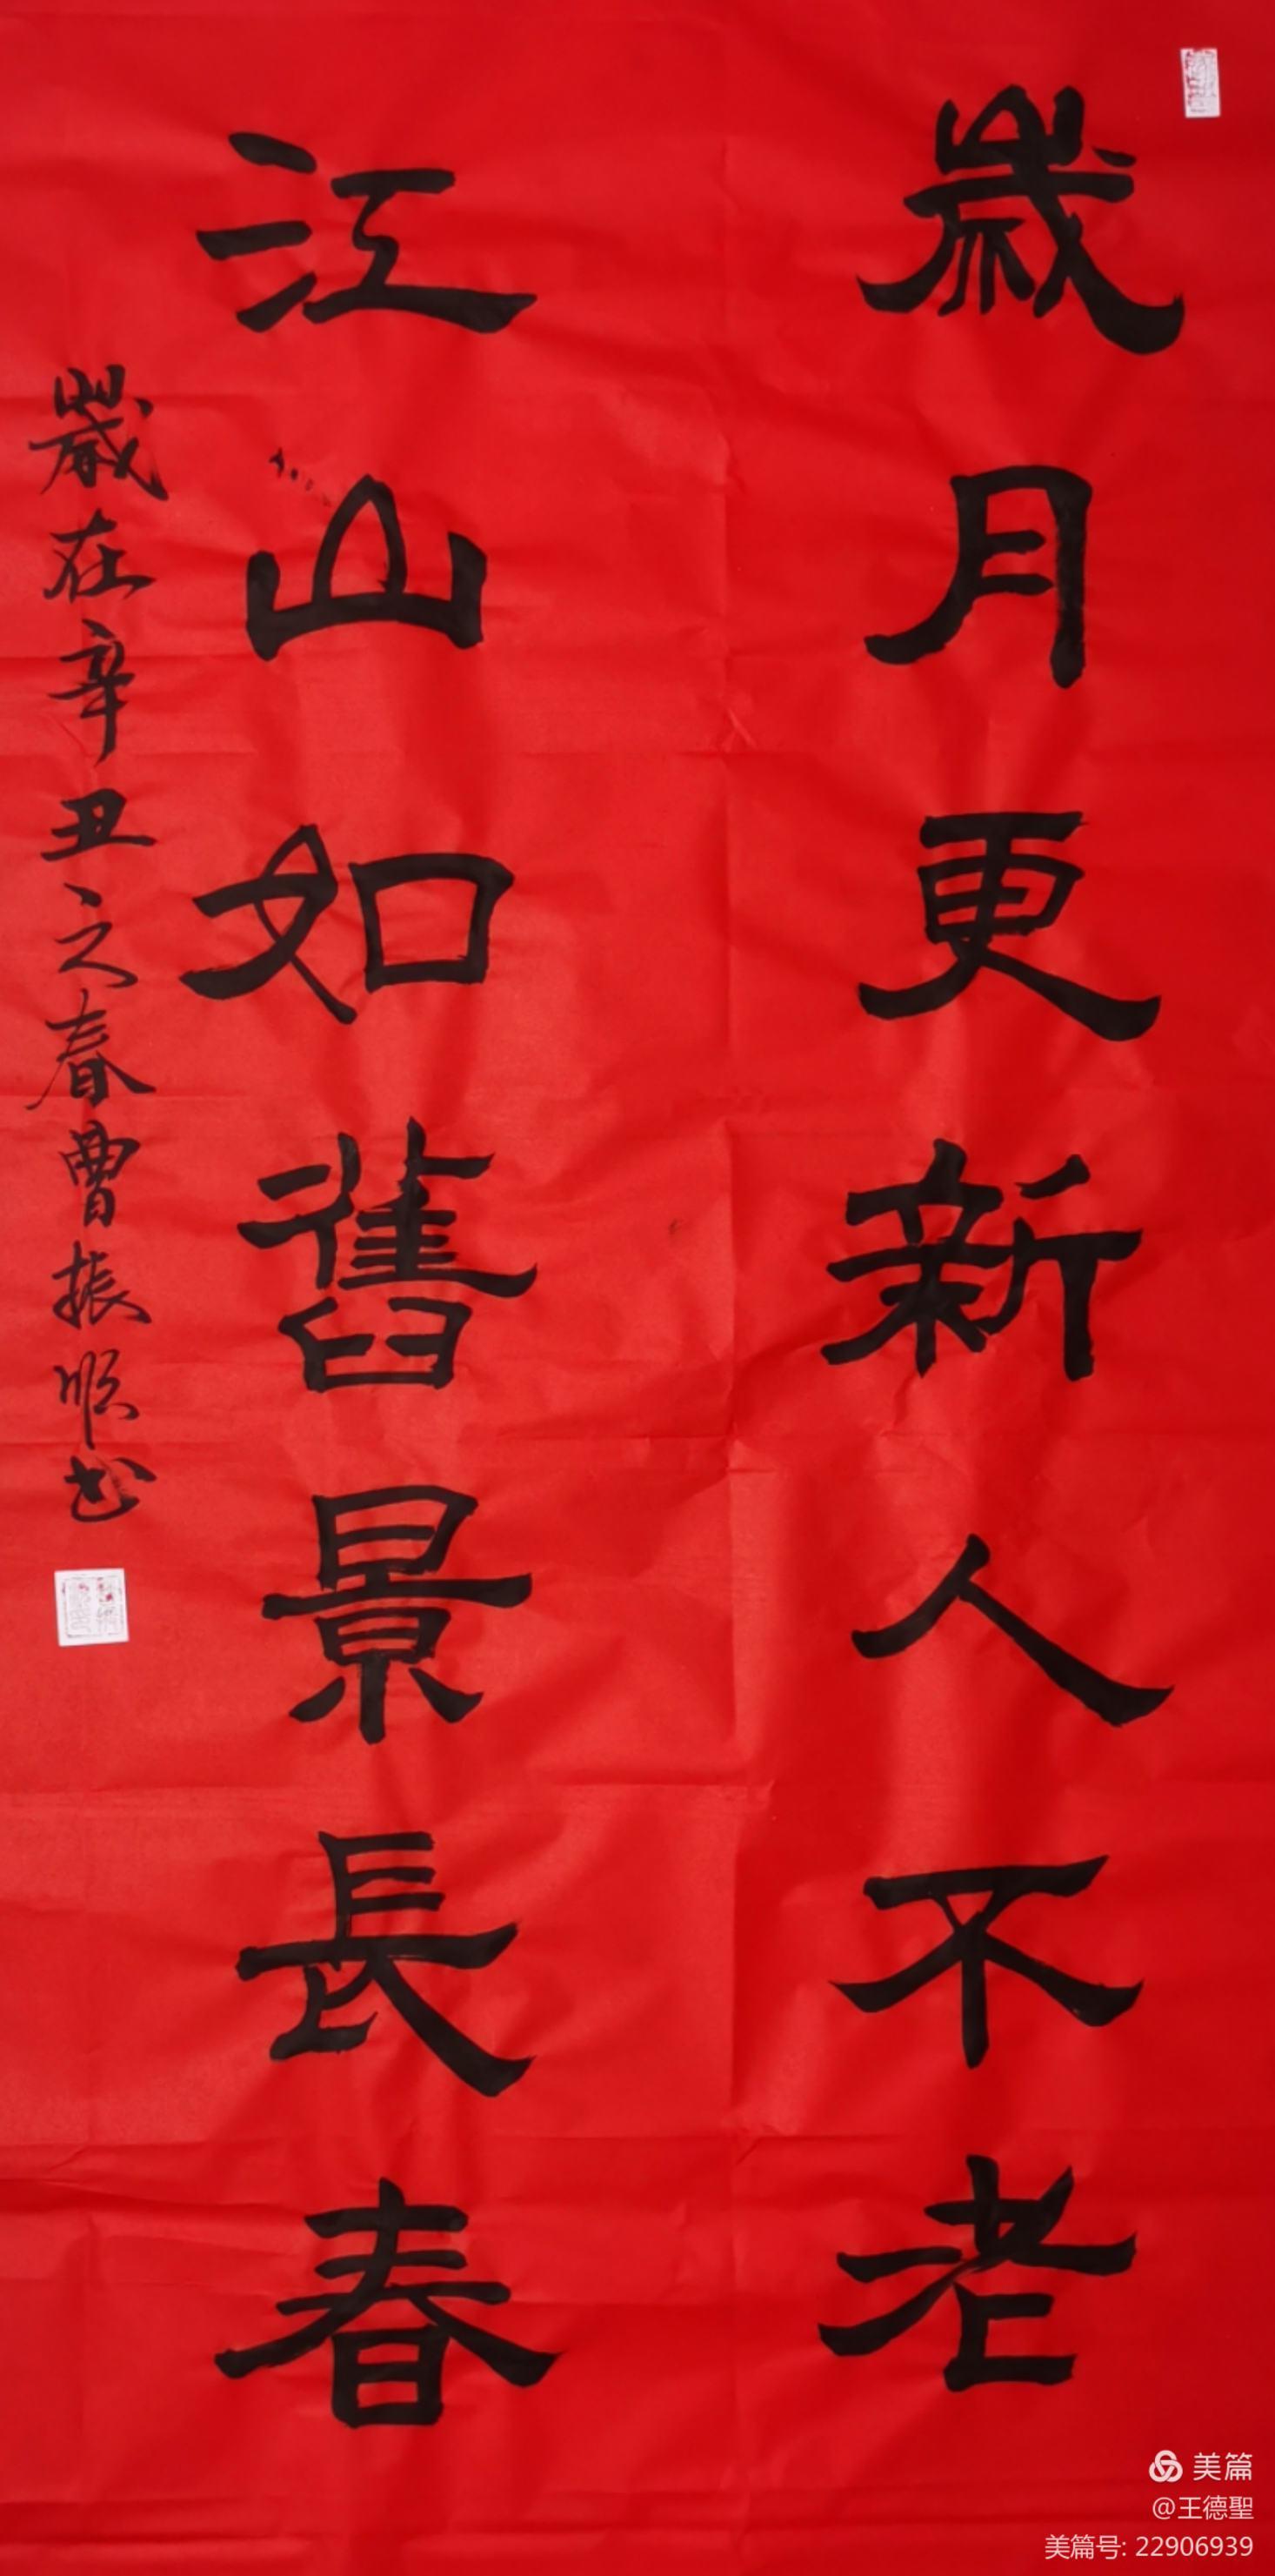 歲月更新人不老
江山如舊景長春
歲在辛丑之春曹振順书
美篇
@王德聖
美篇号: 22906939